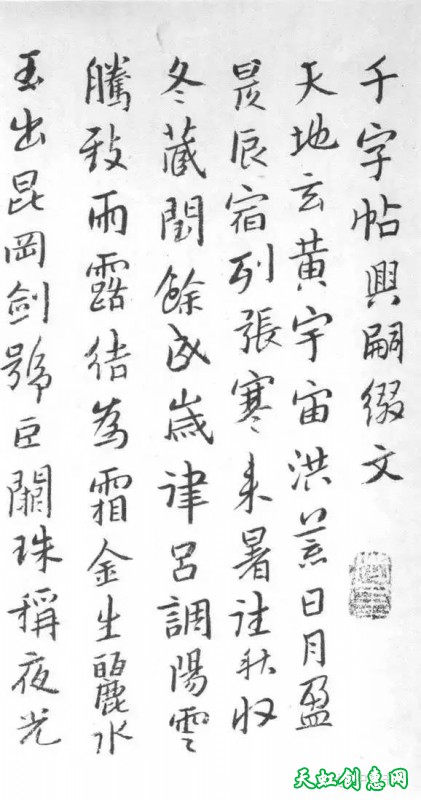 千字帖興嗣缀文
天地玄黄宇宙洪荒日月盈
昃辰宿列張寒来暑往秋収
冬蔵閏餘成歲律呂調陽雲
騰致雨露结為霜金生麗水
玉出昆岡劍號巨闕珠稱夜光
天虹创意网